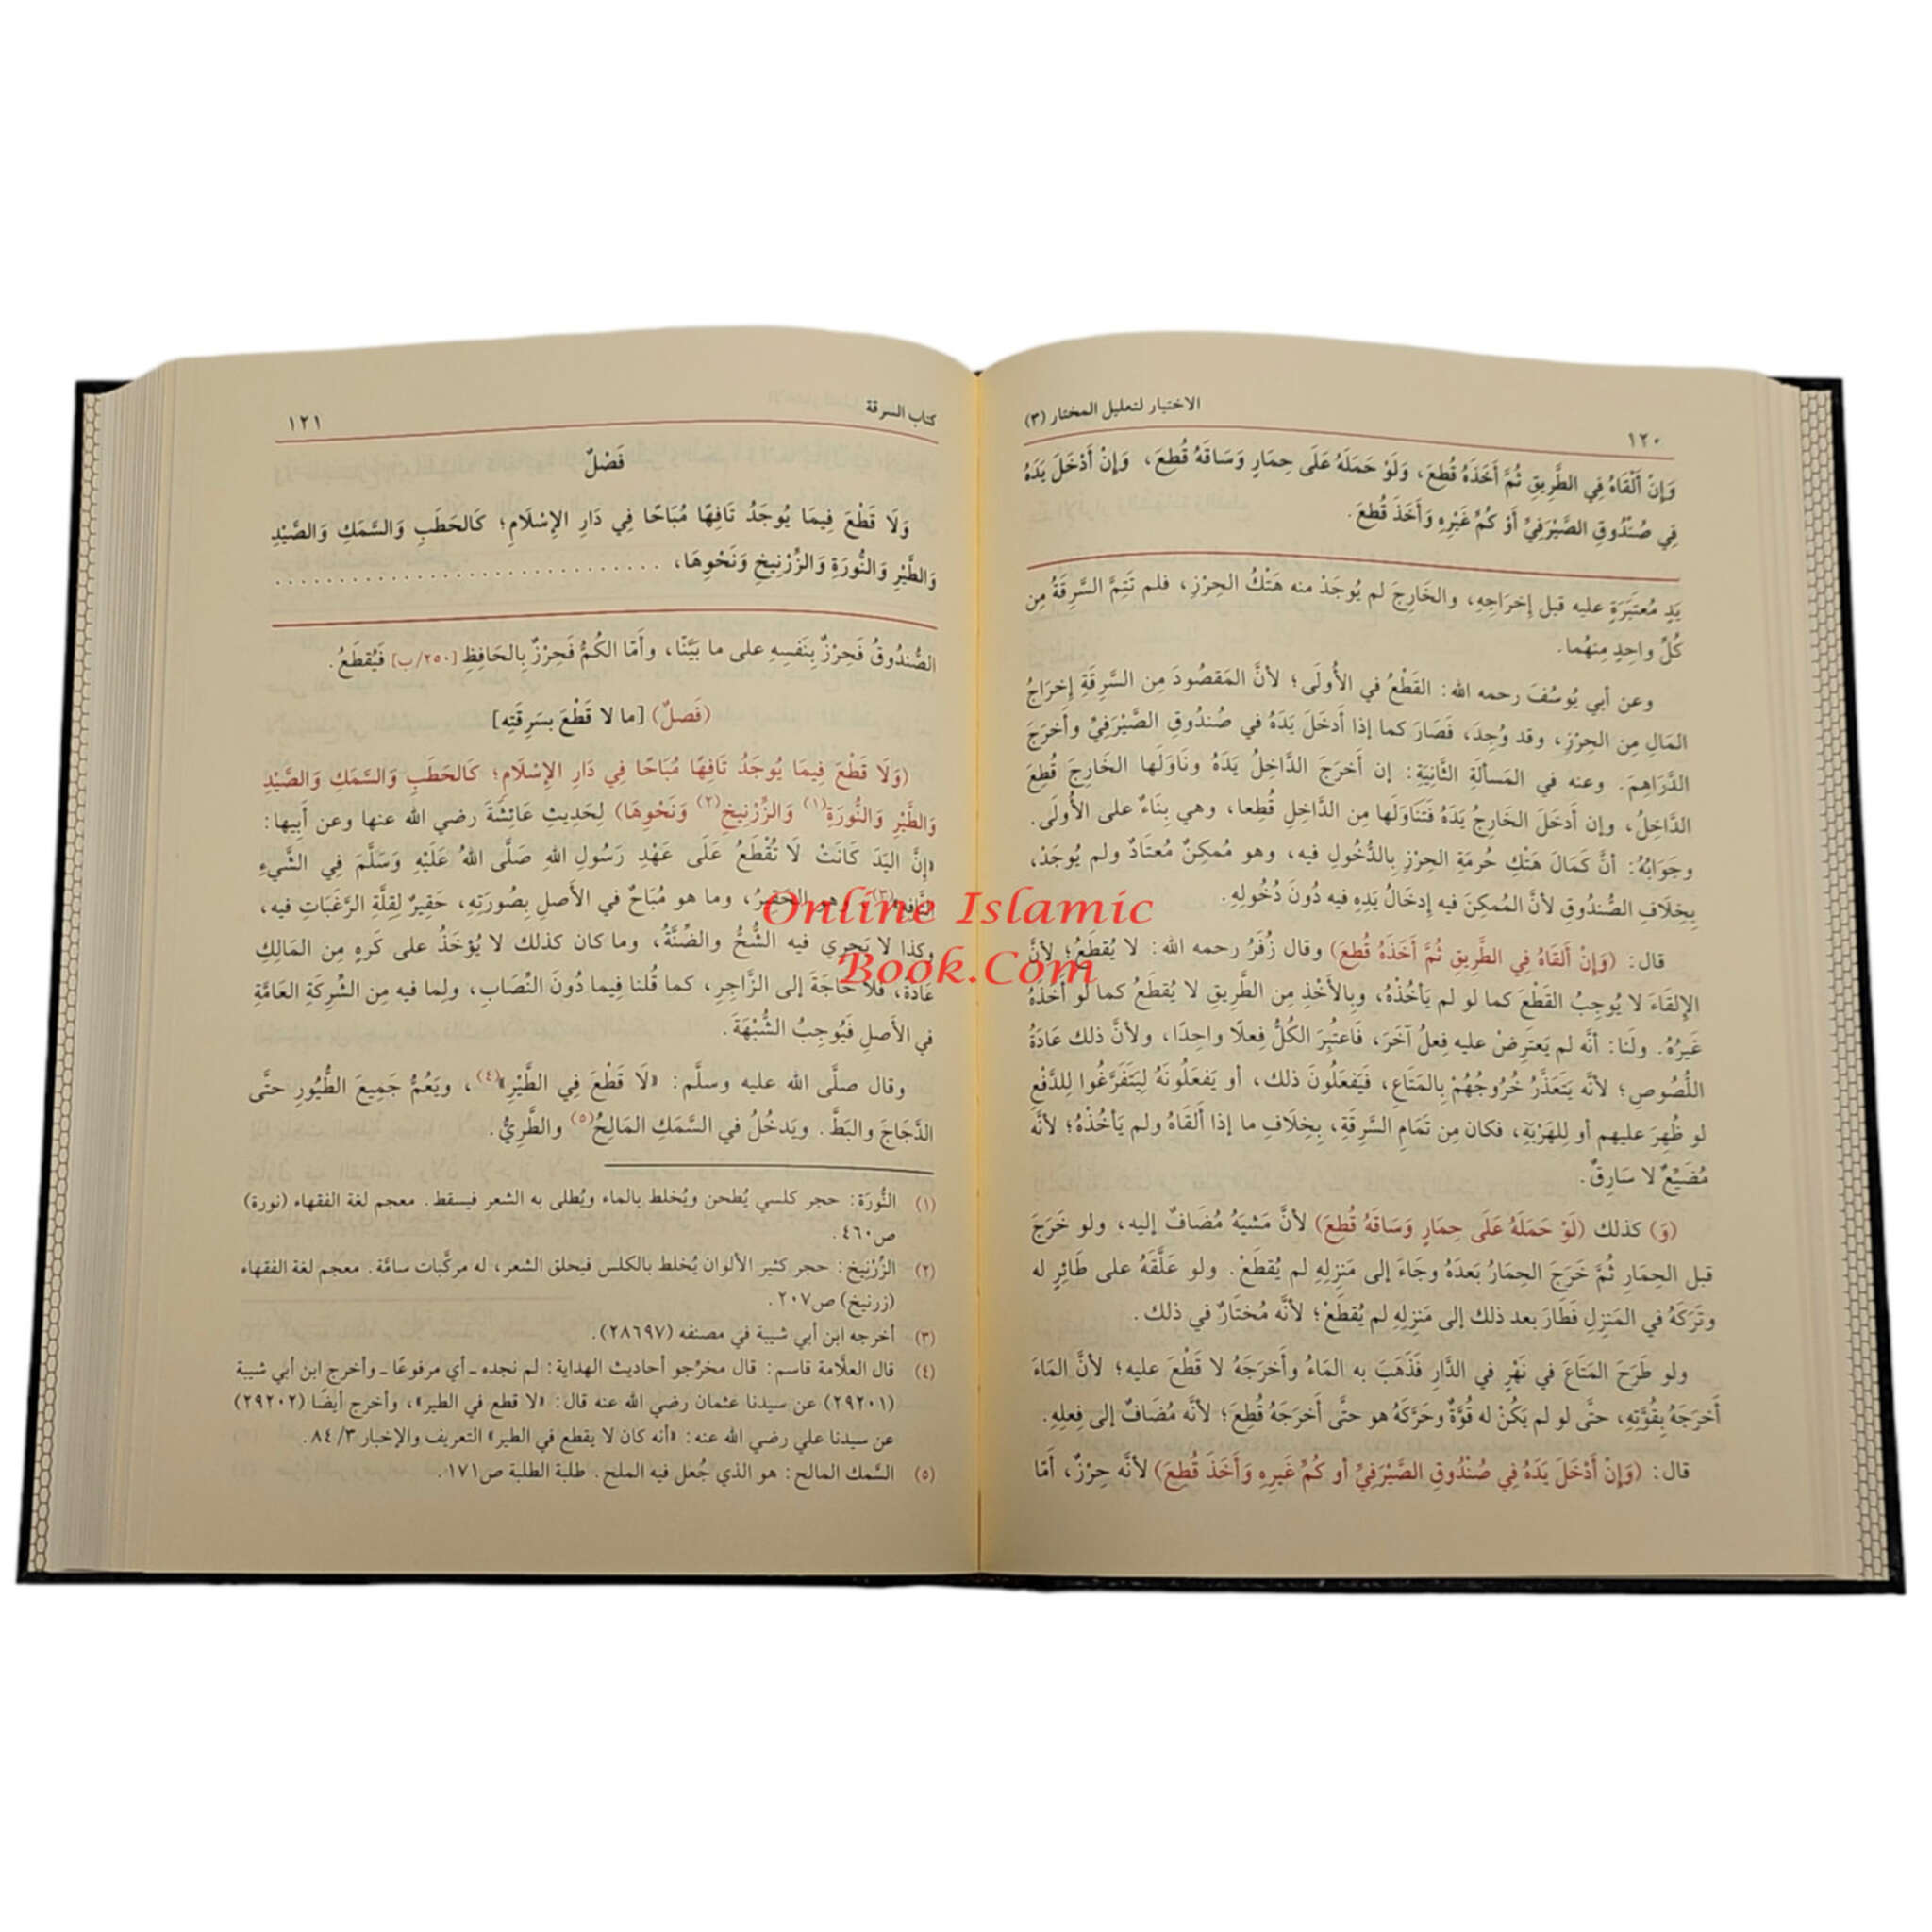 الاختيار لتعليل المختار (٣)
١٢٠
وَإِنْ أَلْقَاهُ فِي الطَّرِيقِ ثُمَّ أَخَذَهُ قُطِعَ، وَلَوْ حَمَلَهُ عَلَى حِمَارٍ وَسَاقَهُ قُطِعَ، وَإِنْ أَدْخَلَ يَدَهُ
فِي صُنْدُوقِ الصَّيْرَفِيِّ أَوْ كُمِّ غَيْرِهِ وَأَخَذَ قُطِعَ.
يَدٍ مُعتَبَرَةٍ عليه قبل إِخرَاجِهِ، والخَارِجَ لم يُوجَدْ منه هَتْكُ الحِرْزِ، فلم تَتِمَّ السَّرِقَةُ مِن
كُلِّ واحِدٍ مِنهُما.
وعن أبي يُوسُفَ رحمه الله: القَطْعُ في الأُولَى؛ لأنَّ المَقصُودَ مِن السَّرِقَةِ إِخرَاجُ
المَالِ مِن الحِرْزِ، وقد وُجِدَ، فَصَارَ كما إذا أَدخَلَ يَدَهُ في صُندُوقِ الصَّيْرَفِيِّ وأَخرَجَ
الدَّرَاهِمَ. وعنه في المَسأَلَةِ الثَّانِيَةِ: إن أَخرَجَ الدَّاخِلُ يَدَهُ ونَاوَلَها الخَارِجَ قُطِعَ
الدَّاخِلُ، وإن أَدخَلَ الخَارِجُ يَدَهُ فَتَنَاوَلَها مِن الدَّاخِلِ قُطِعا، وهي بِنَاءٌ على الأُولَى.
وجَوَابُهُ: أنَّ كَمَالَ هَتْكِ حُرمَةِ الحِرْزِ بِالدُّخُولِ فيه، وهو مُمكِنٌ مُعتَادٌ ولم يُوجَدْ،
بِخِلَافِ الصُّندُوقِ لأنَّ المُمكِنَ فيه إِدخَالُ يَدِهِ فيه دُونَ دُخُولِهِ.
قال: (وَإِنْ أَلقَاهُ فِي الطَّرِيقِ ثُمَّ أَخَذَهُ قُطِعَ) وقال زُفَرُ رحمه الله: لا يُقطَعُ؛ لأنَّ
الإِلقَاءَ لا يُوجِبُ القَطْعَ كما لو لم يَأخُذْهُ، وبِالأَخْذِ مِن الطَّرِيقِ لا يُقطَعُ كما لو أَخَذَهُ
غَيرُهُ. ولَنا: أنَّه لم يَعتَرِضْ عليه فِعلُ آخَرَ، فَاعتُبِرَ الكُلُّ فِعلًا واحِدًا، ولأنَّ ذلك عَادَةُ
اللُّصُوصِ؛ لأنَّه يَتَعَذَّرُ خُرُوجُهُمْ بِالمَتَاعِ، فَيَفعَلُونَ ذلك، أو يَفعَلُونَهُ لِيَتَفَرَّغُوا لِلدَّفْعِ
لو ظُهِرَ عليهم أو لِلهَرْبَةِ، فكان مِن تَمَامِ السَّرِقَةِ، بِخِلَافِ ما إذا أَلقَاهُ ولم يَأخُذْهُ؛ لأنَّه
مُضَيِّعٌ لا سَارِقٌ.
(وَ) كذلك (لَوْ حَمَلَهُ عَلَى حِمَارٍ وَسَاقَهُ قُطِعَ) لأنَّ مَشيَهُ مُضَافٌ إليه، ولو خَرَجَ
قبل الحِمَارِ ثُمَّ خَرَجَ الحِمَارُ بَعدَهُ وجَاءَ إلى مَنزِلِهِ لم يُقطَعْ. ولو عَلَّقَهُ على طَائِرٍ له
وتَرَكَهُ في المَنزِلِ فَطَارَ بعد ذلك إلى مَنزِلِهِ لم يُقطَعْ؛ لأنَّه مُختَارٌ في ذلك.
ولو طَرَحَ المَتَاعَ في نَهْرٍ في الدَّارِ فَذَهَبَ به المَاءُ وأَخرَجَهُ لا قَطْعَ عليه؛ لأنَّ المَاءَ
أَخرَجَهُ بِقُوَّتِهِ، حتَّى لو لم يَكُنْ له قُوَّةٌ وحَرَّكَهُ هو حتَّى أَخرَجَهُ قُطِعَ؛ لأنَّه مُضَافٌ إلى فِعلِهِ.
قال: (وَإِنْ أَدْخَلَ يَدَهُ فِي صُنْدُوقِ الصَّيْرَفِيِّ أو كُمِّ غَيرِهِ وَأَخَذَ قُطِعَ) لأنَّه حِرْزٌ، أمَّا
كتاب السرقة
١٢١
فَصْلٌ
وَلَا قَطْعَ فِيمَا يُوجَدُ تَافِهًا مُبَاحًا فِي دَارِ الإِسْلَامِ؛ كَالحَطَبِ وَالسَّمَكِ وَالصَّيْدِ
وَالطَّيْرِ وَالنُّورَةِ وَالزِّرْنِيخِ وَنَحْوِهَا، ..............................
الصُّندُوقُ فَحِرْزٌ بِنَفسِهِ على ما بَيَّنَّا، وأَمَّا الكُمُّ فَحِرْزٌ بِالحَافِظِ [٢٥٠/ب] فَيُقطَعُ.
(فَصلٌ) [ما لا قَطْعَ بسَرِقَتِه]
(وَلَا قَطْعَ فِيمَا يُوجَدُ تَافِهًا مُبَاحًا فِي دَارِ الإِسْلَامِ؛ كَالحَطَبِ وَالسَّمَكِ وَالصَّيْدِ
وَالطَّيْرِ وَالنُّورَةِ(١) وَالزِّرْنِيخِ(٢) وَنَحْوِهَا) لِحَدِيثِ عَائِشَةَ رضي الله عنها وعن أَبِيها:
«إِنَّ اليَدَ كَانَتْ لَا تُقْطَعُ عَلَى عَهْدِ رَسُولِ اللهِ صَلَّى اللهُ عَلَيْهِ وَسَلَّمَ فِي الشَّيءِ
التَّافِهِ»(٣)، وهو الحَقِيرُ، وما هو مُبَاحٌ في الأَصلِ بِصُورَتِهِ، حَقِيرٌ لِقِلَّةِ الرَّغَبَاتِ فيه،
وكذا لا يَجرِي فيه الشُّحُّ والضِّنَّةُ، وما كان كذلك لا يُؤخَذُ على كَرهٍ مِن المَالِكِ
عَادَةً، فلا حَاجَةَ إلى الزَّاجِرِ، كما قُلنا فِيما دُونَ النِّصَابِ، ولِما فيه مِن الشِّرِكَةِ العَامَّةِ
في الأَصلِ فَيُوجِبُ الشُّبْهَةَ.
وقال صلَّى الله عليه وسلَّم: «لَا قَطْعَ فِي الطَّيْرِ»(٤)، ويَعُمُّ جَمِيعَ الطُّيُورِ حتَّى
الدَّجَاجَ والبَطَّ. ويَدخُلُ في السَّمَكِ المَالِحُ(٥) والطَّرِيُّ.
(١) النُّورَة: حجر كلسي يُطحن ويُخلط بالماء ويُطلى به الشعر فيسقط. معجم لغة الفقهاء (نورة)
ص٤٦٠.
(٢) الزِّرْنِيخ: حجر كثير الألوان يُخلط بالكلس فيحلق الشعر، له مركَّبات سامَّة. معجم لغة الفقهاء
(زرنيخ) ص٢٠٧.
(٣) أخرجه ابن أبي شيبة في مصنفه (٢٨٦٩٧).
(٤) قال العلَّامة قاسم: قال مخرِّجو أحاديث الهداية: لم نجده ـ أي مرفوعًا ـ وأخرج ابن أبي شيبة
(٢٩٢٠١) عن سيدنا عثمان رضي الله عنه قال: «لا قطع في الطير»، وأخرج أيضًا (٢٩٢٠٢)
عن سيدنا علي رضي الله عنه: «أنه كان لا يقطع في الطير» التعريف والإخبار ٣/ ٨٤.
(٥) السَّمك المالح: هو الذي جُعل فيه الملح. طلبة الطلبة ص١٧١.
Online Islamic
Book.Com